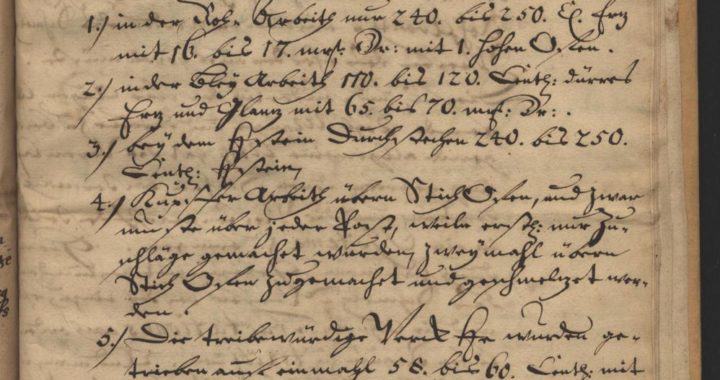 1.) in der Roh-Arbeith nur 240. bis 250. C. Ertz
mit 16. bis 17. mrk: Sr: mit 1. hohen Ofen.
2.) in der Bley Arbeith 110. bis 120. Centh: dürres
Ertz und Glantz mit 65. bis 70. mrk: Sr: .
3.) bey dem Stein Durchstechen 240. bis 250.
Centh: Stein,
4.) Kupffer Arbeith übern Stich Ofen, und zwar
muste über jeder Post, weiln erstl: nur Zu-
schläge gemachet wurden, zweymahl übern
Stich Ofen zugemachet und geschmeltzet wer-
den.
5.) Die treibewürdige Werck wurden ge-
trieben auff einmahl 58. bis 60. Centh: mit